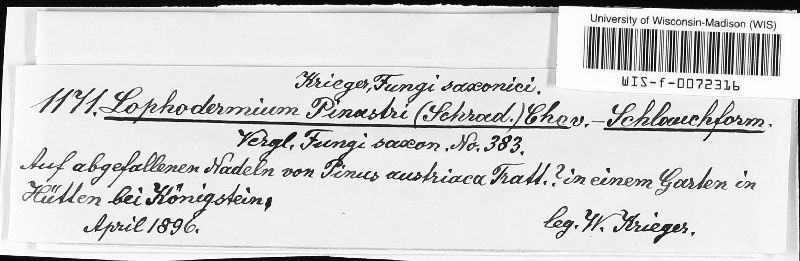 University of Wisconsin-Madison (WIS)
WIS-f-0072316
Krieger, Fungi saxonici.
1171. Lophodermium Pinastri (Schrad.) Chev. - Schlauchform.
Vergl. Fungi saxon. No. 383.
Auf abgefallenen Nadeln von Pinus austriaca Tratt.? in einem Garten in
Hütten bei Königstein,
April 1896.
leg. W. Krieger.